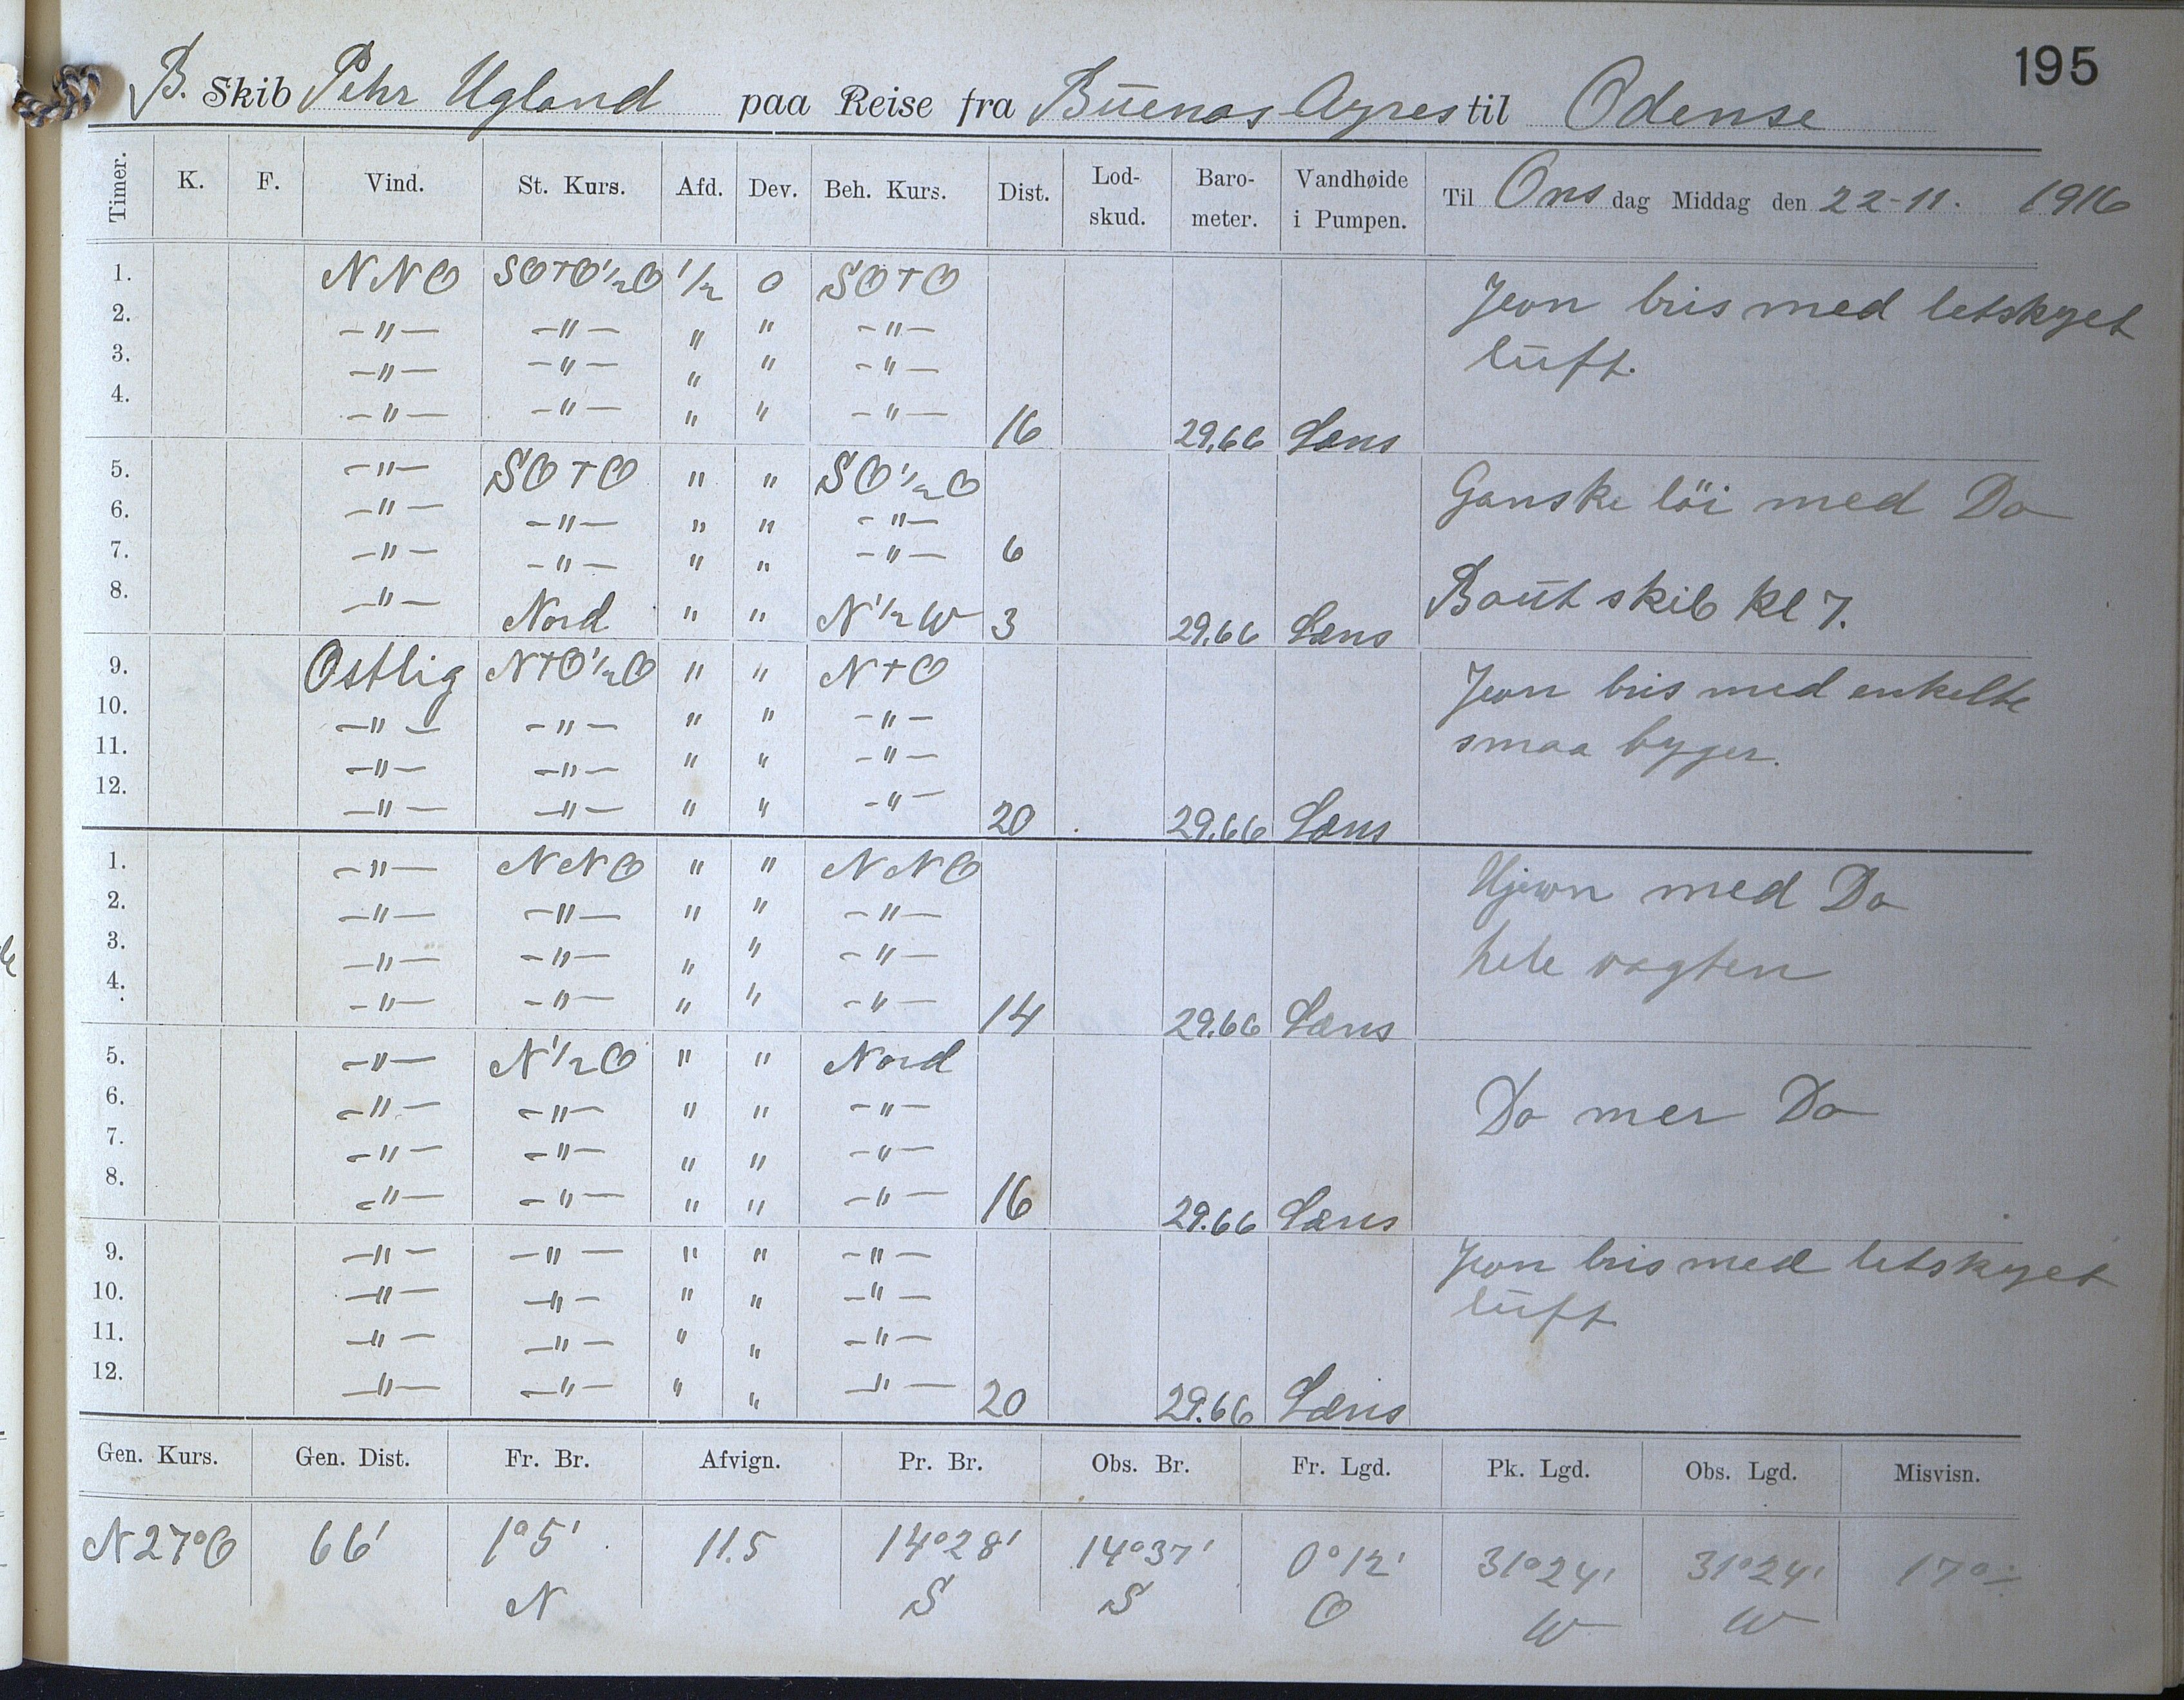 195
B. Skib Pehr Ugland paa Reise fra Buenos Ayres til Odense
Timer. K. F. Vind. St. Kurs. Afd. Dev. Beh. Kurs. Dist. Lod- skud. Baro- meter. Vandhøide i Pumpen. Til Ons dag Middag den 22-11. 1916
1. NNO SO+O½O ½ 0 SO+O Jevn bris med letskyet
2. -"- -"- " " -"- luft.
3. -"- -"- " " -"-
4. -"- -"- " " -"- 16 29.66 Læns
5. -"- SO+O " " SO½O Ganske löi med Do
6. -"- -"- " " -"-
7. -"- -"- " " -"- 6
8. -"- Nord " " N½W 3 29.66 Læns Bout skib kl 7.
9. Ostlig N+O½O " " N+O Jevn bris med enkelte
10. -"- -"- " " -"- smaa byger.
11. -"- -"- " " -"-
12. -"- -"- " " -"- 20 29.66 Læns
1. -"- NNO " " NNO Ujevn med Do
2. -"- -"- " " -"- hele vagten
3. -"- -"- " " -"-
4. -"- -"- " " -"- 14 29.66 Læns
5. -"- N½O " " Nord
6. -"- -"- " " -"- Do mer Do
7. -"- -"- " " -"-
8. -"- -"- " " -"- 16 29.66 Læns
9. -"- -"- " " -"- Jevn bris med letskyet
10. -"- -"- " " -"- luft
11. -"- -"- " " -"-
12. -"- -"- " " -"- 20 29.66 Læns
Gen. Kurs. Gen. Dist. Fr. Br. Afvign. Pr. Br. Obs. Br. Fr. Lgd. Pk. Lgd. Obs. Lgd. Misvisn.
N27°O 66' 1°5' 11.5 14°28' 14°37' 0°12' 31°24' 31°24' 17°÷
N S S O W W